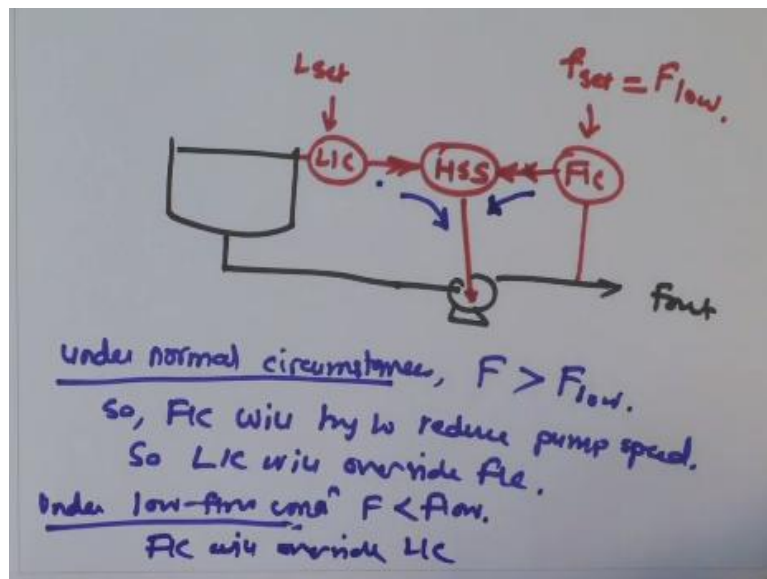 Lset
fset = Flow.
LIC
HSS
FIC
fout
under normal circumstances, F > Flow.
So, FIC will try to reduce pump speed.
So LIC will override FIC.
Under low-flow condn F < flow.
FIC will override LIC